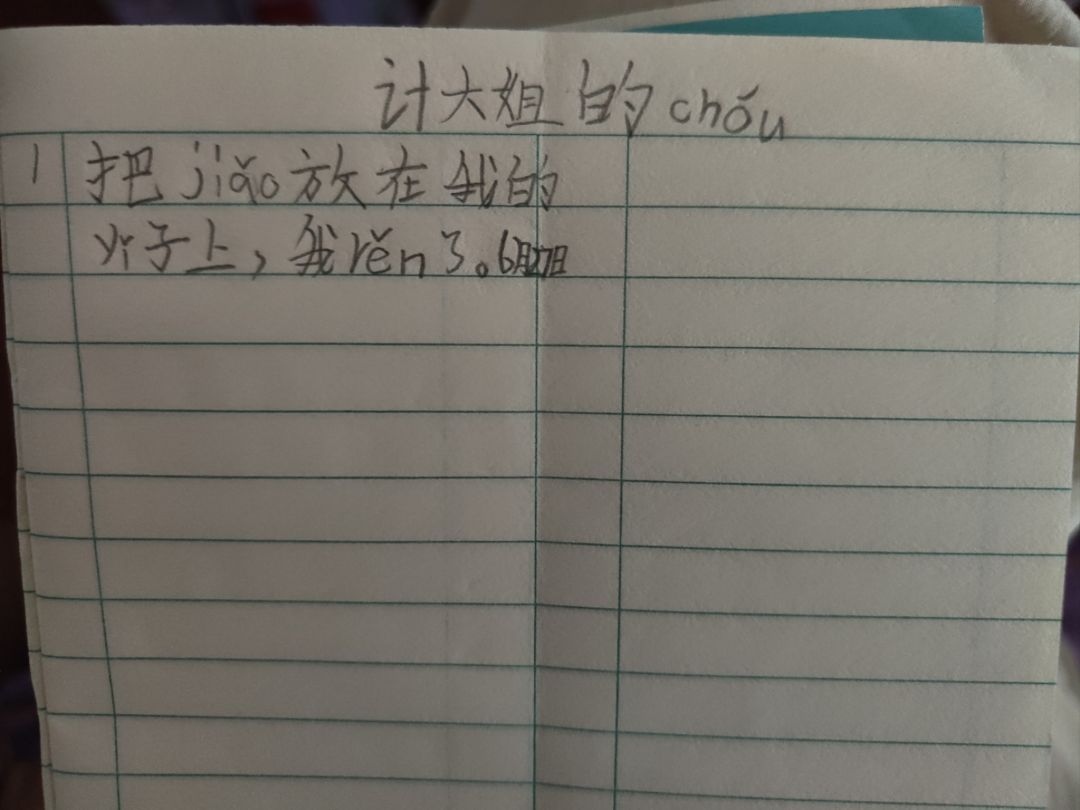 计大姐的chóu
1 把jiǎo放在我的
yǐ子上，我rěn了。6月27日